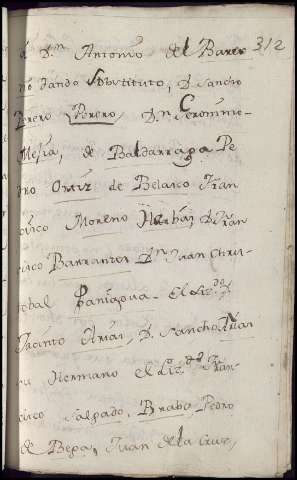 312
a D.n Antonio del Barco
no dando Substituto, D. Sancho
Perero Perero, D.n Geronimo
Mesia, de Baldarraga Pe
dro Ortiz de Belasco Fran
cisco Moreno D. Fran
cisco Barrantes D.n Juan Chris-
tobal Paniagua. El liz.do
Jacinto Arias, D. Sancho
su Hermano el liz.do Fran
cisco Salgado, Brabo Pedro
de Bepa, Juan de la Cruz,